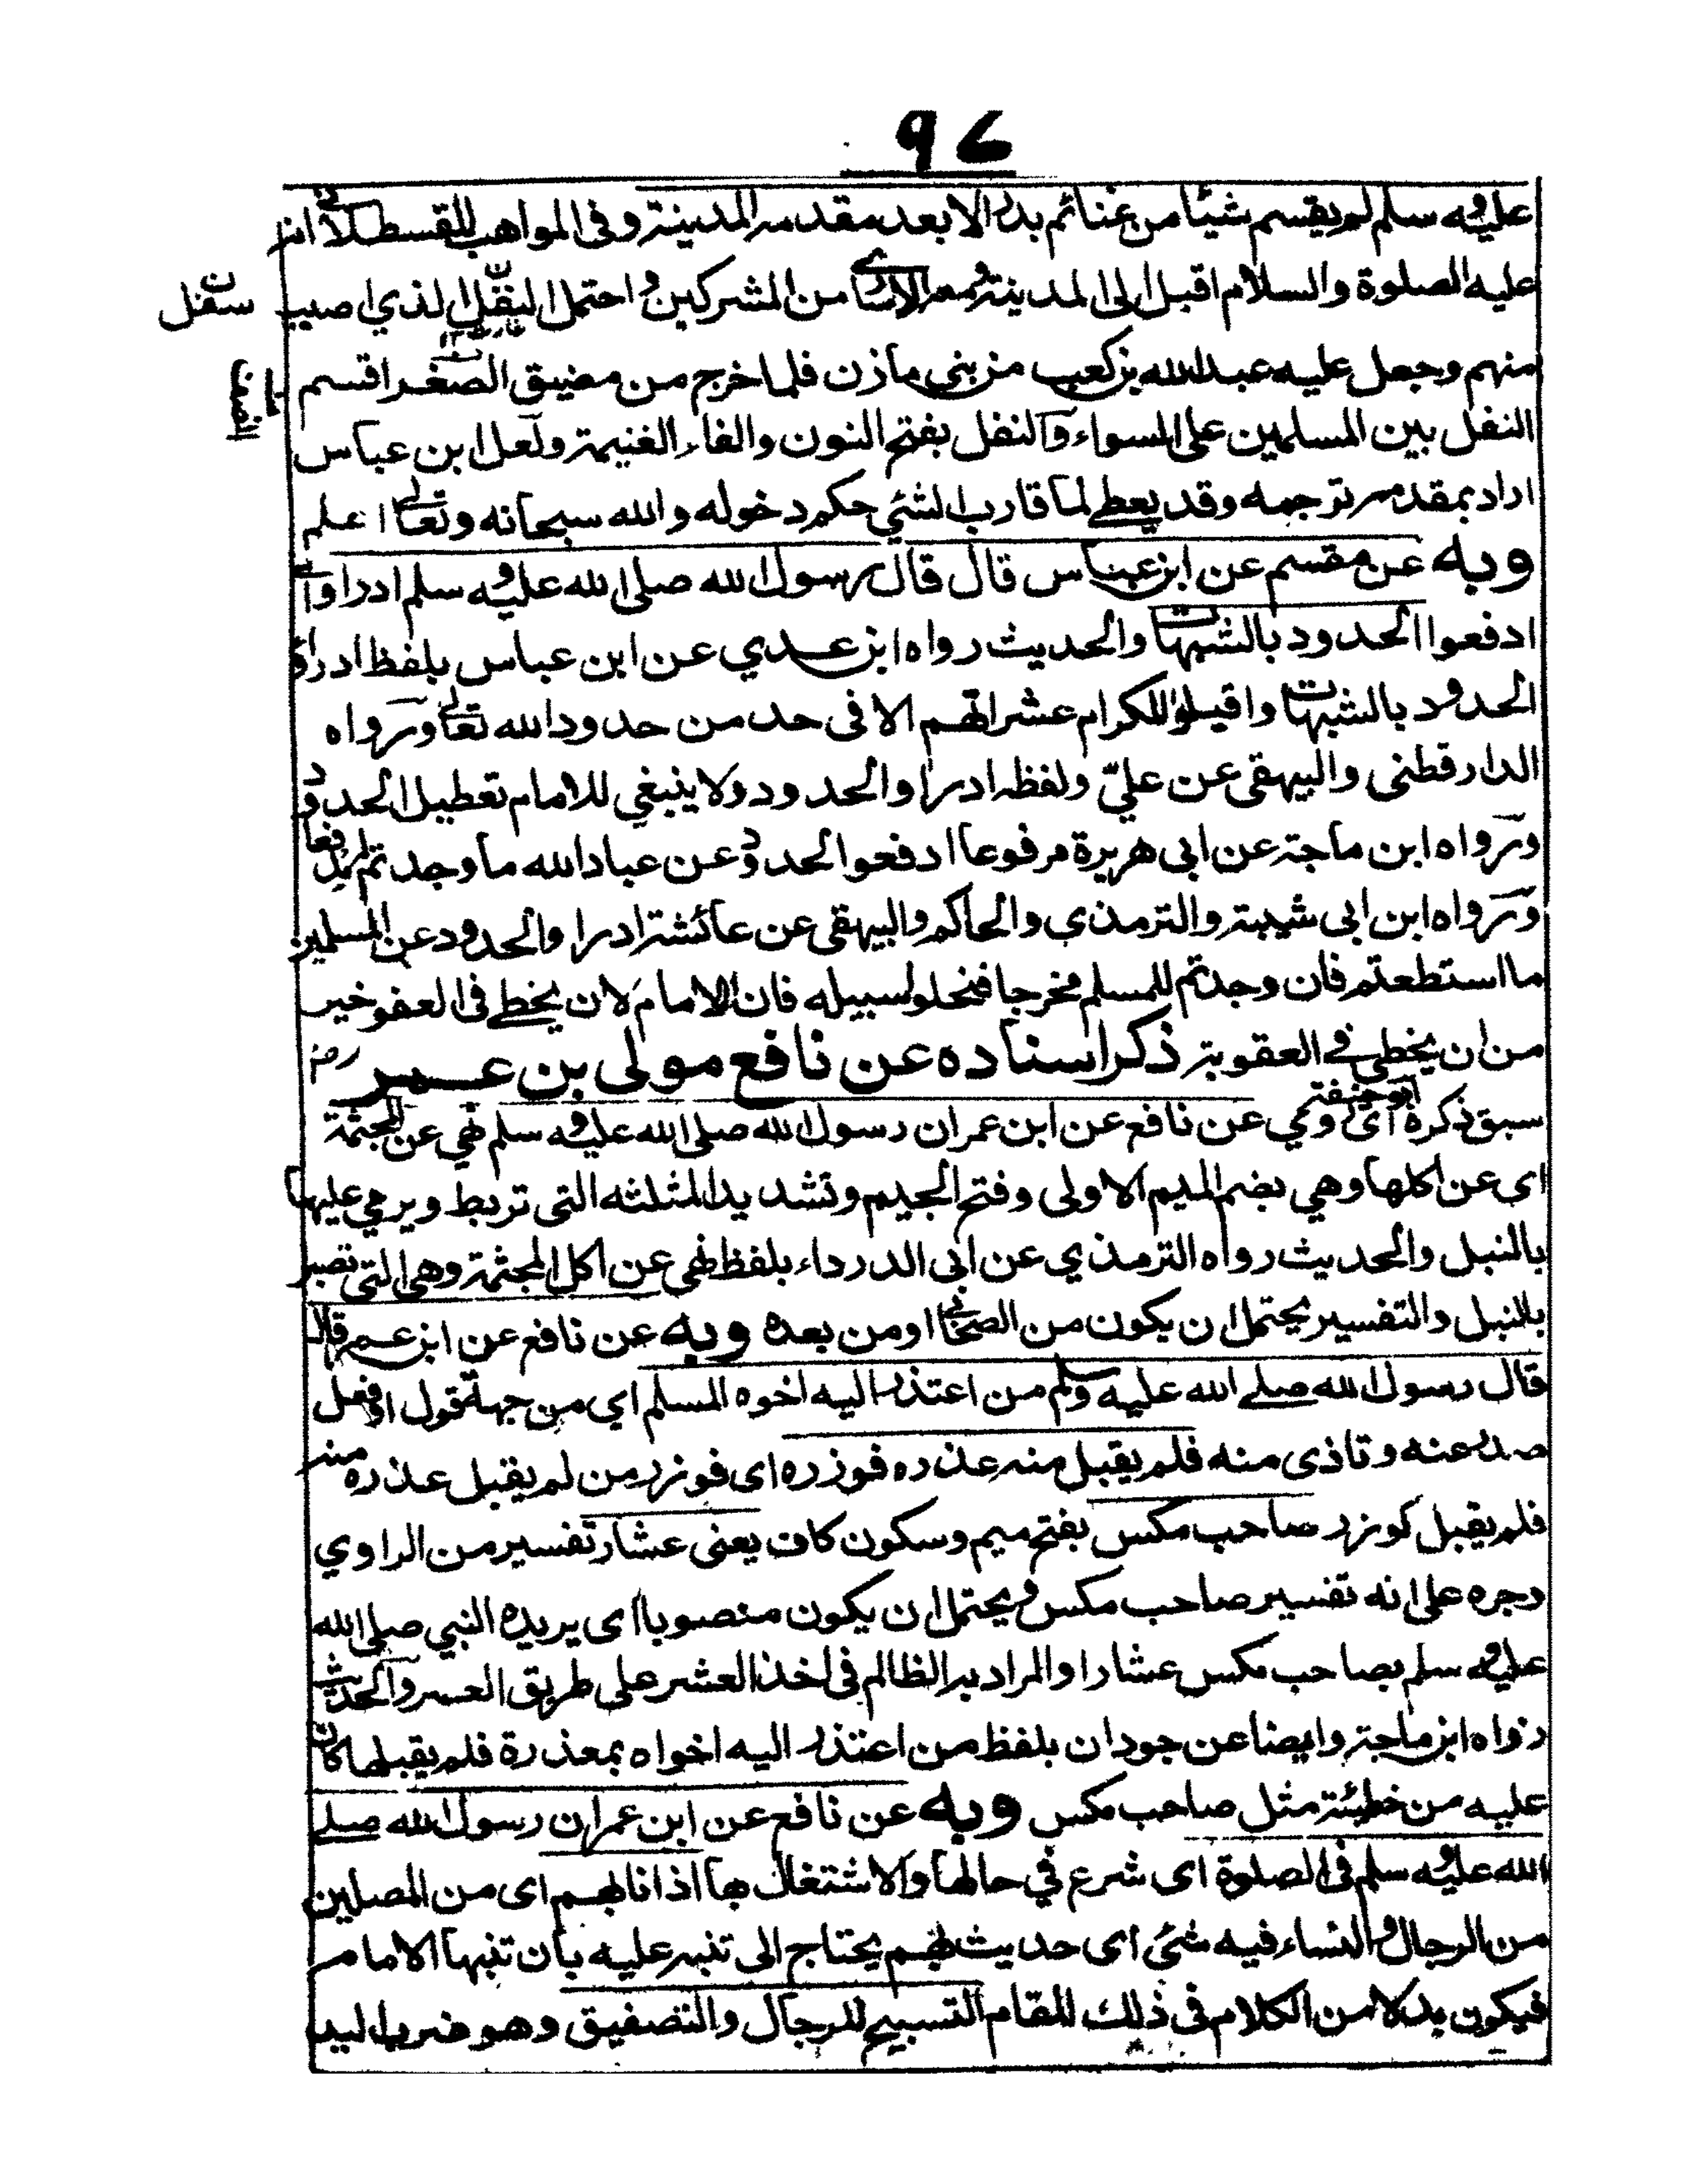 ٩٧
عليه وسلم لم يقسم شيئا من غنائم بدر الا بعد مقدمه المدينة وفي المواهب للقسطلاني انه
عليه الصلوة والسلام اقبل الى المدينة ومعه الاسارى من المشركين واحتمل النفل الذي اصيب
منهم وجعل عليه عبدالله بن كعب من بني مازن فلما خرج من مضيق الصغرا قسم
النفل بين المسلمين على السواء والنفل بفتح النون والفاء الغنيمة ولعل ابن عباس
اراد بمقدمه توجهه وقد يعطى لما قارب الشئ حكم دخوله والله سبحانه وتعالى اعلم
وبه عن مقسم عن ابن عباس قال قال رسول الله صلى الله عليه وسلم ادراوا اي
ادفعوا الحدود بالشبهات والحديث رواه ابن عدي عن ابن عباس بلفظ ادراوا
الحدود بالشبهات واقيلوا الكرام عشراتهم الا في حد من حدود الله تعالى ورواه
الدارقطنى والبيهقى عن عليّ ولفظه ادراوا الحدود ولا ينبغي للامام تعطيل الحدود
ورواه ابن ماجة عن ابى هريرة مرفوعا ادفعوا الحدود عن عباد الله ما وجدتم له مدفعا
ورواه ابن ابى شيبة والترمذي والحاكم والبيهقى عن عائشة ادراوا الحدود عن المسلمين
ما استطعتم فان وجدتم للمسلم مخرجا فخلوا سبيله فان الامام لان يخطى فى العفو خير
من ان يخطى في العقوبة ذكر اسناده عن نافع مولى بن عمر رض
سبق ذكره ابو حنيفة اى روى عن نافع عن ابن عمر ان رسول الله صلى الله عليه وسلم نهي عن المجثمة
اى عن اكلها وهي بضم الميم الاولى وفتح الجيم وتشديد المثلثه التى تربط ويرمي عليها
بالنبل والحديث رواه الترمذي عن ابى الدرداء بلفظ نهى عن اكل المجثمة وهى التى تصبر
بالنبل والتفسير يحتمل ان يكون من الصحابي او من بعده وبه عن نافع عن ابن عمر قال
قال رسول الله صلى الله عليه وسلم من اعتذر اليه اخوه المسلم اي من جهة قول او فعل
صدر عنه وتاذى منه فلم يقبل منه عذره فوزره اى فوزر من لم يقبل عذره منه
فلم يقبل كوزر صاحب مكس بفتح ميم وسكون كاف يعنى عشار تفسير من الراوي
وجره على انه تفسير صاحب مكس ويحتمل ان يكون منصوبا اى يريده النبي صلى الله
عليه وسلم بصاحب مكس عشارا والمراد به الظالم فى اخذ العشر على طريق العسر والحديث
رواه ابن ماجة وايضا عن جودان بلفظ من اعتذر اليه اخواه بمعذرة فلم يقبلها كان
عليه من خطيئة مثل صاحب مكس وبه عن نافع عن ابن عمر ان رسول الله صلى
الله عليه وسلم فى الصلوة اى شرع في حالها والاشتغال بها اذا نابهم اى من المصلين
من الرجال والنساء فيه شئ اى حديث لهم يحتاج الى تنبه عليه بان تنبها الامام
فيكون بدلا من الكلام فى ذلك المقام التسبيح للرجال والتصفيق وهو ضرب اليد